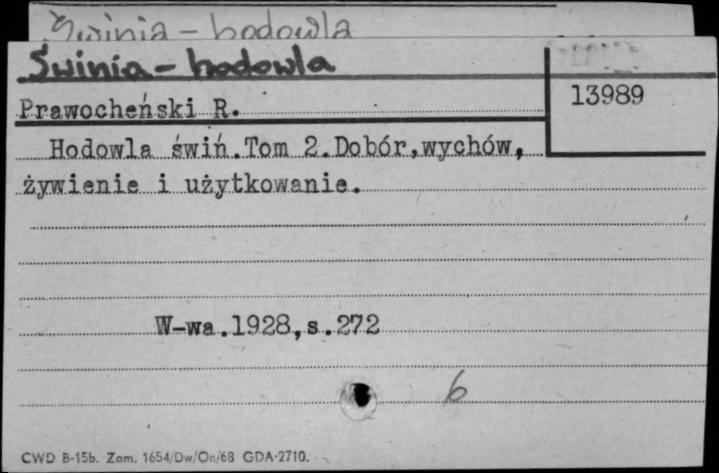 Świnia - hodowla
Świnia - hodowla
13989
Prawocheński R.
Hodowla świń.Tom 2.Dobór,wychów,
żywienie i użytkowanie.
W-wa.1928,s.272
6
CWD B-15b. Zam. 1654/Dw/On/68 GDA-2710.